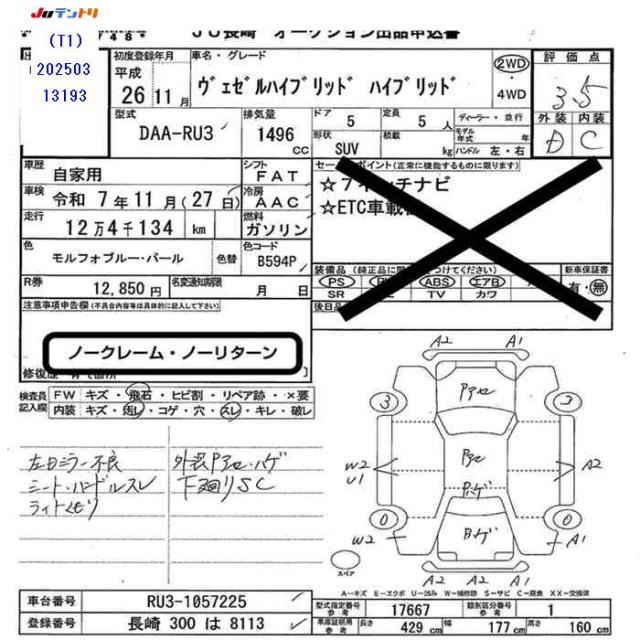 JUテントリ
(T1)
202503
13193
748
JU長崎 オークション出品申込書
初度登録年月
平成
26年11月
車名・グレード
ヴェゼルハイブリッド ハイブリッド
2WD
・
4WD
評価点
3.5
外装 内装
D C
型式
DAA-RU3
排気量
1496
CC
ドア
5
定員
5人
形状
SUV
積載
kg
ディーラー・並行
モデル年式
年
ハンドル 左・右
車歴
自家用
シフト
FAT
車検
令和 7年11月(27日)
冷房
AAC
走行
12万4千134 km
燃料
ガソリン
色
モルフォブルー・パール
色替
色コード
B594P
R券
12,850 円
名変通知期限
月 日
セールスポイント(正常に機能するものに限ります)
☆7インチナビ
☆ETC車載
PS
ABS
エアB
SR
TV
カワ
新車保証書
有・無
後日品
注意事項申告欄(不具合内容等は具体的に記入して下さい)
ノークレーム・ノーリターン
検査員記入欄
FW キズ・飛石・ヒビ割・リペア跡・×要
内装 キズ・汚レ・コゲ・穴・スレ・キレ・破レ
左ドミラー不良
シート・ハンドルスレ
ライトくもり
外装Pアセ・ハゲ
下廻りSC
A2 A1
Pアセ
3 3
Pアセ
W2
U1
A2
Pハゲ
0 0
W2
A1
A2 A2 A1
スペア
A-キズ E-エクボ U-凹み W-補修跡 S-サビ C-腐食 XX-交換済
車台番号
RU3-1057225
登録番号
長崎 300 は 8113
型式指定番号
参考
17667
類別区分番号
参考
1
車庫証明用
参考
長さ
429 cm
幅
177 cm
高さ
160 cm